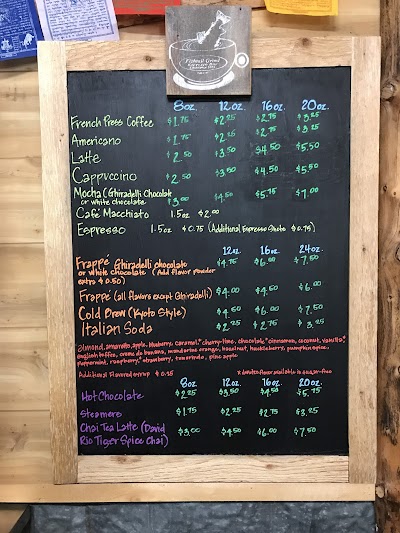 8oz. 12oz. 16oz. 20oz.
French Press Coffee $1.75 $2.25 $2.75 $3.25
Americano $1.75 $2.25 $2.75 $3.25
Latte $2.50 $3.50 $4.50 $5.50
Cappuccino $2.50 $3.50 $4.50 $5.50
Mocha (Ghiradelli Chocolate
or white chocolate $3.00 $4.50 $5.75 $7.00
Café Macchiato 1.5oz $2.00
Espresso 1.5oz $0.75 (Additional Espresso Shots $0.75)
12oz. 16oz. 24oz.
Frappé Ghiradelli chocolate $4.75 $6.00 $7.50
or White Chocolate (Add flavor powder
extra $0.50)
Frappé (all flavors except Ghiradelli) $4.00 $4.50 $6.00
Cold Brew (Kyoto Style) $4.50 $6.00 $7.50
Italian Soda $2.25 $2.75 $3.25
almond, amaretto, apple, blueberry, caramel,* cherry-lime, chocolate,* cinnamon, coconut, vanilla,*
english toffee, creme de banana, mandarine orange, hazelnut, huckleberry, pumpkin spice,
peppermint, raspberry,* strawberry, tamarindo, pine apple
Additional Flavored syrup $0.25 * denotes flavor available in sugar-free
8oz. 12oz. 16oz. 20oz.
Hot Chocolate $2.25 $3.50 $4.50 $5.75
Steamers $1.75 $2.25 $2.75 $3.25
Chai Tea Latte (David $3.00 $4.50 $6.00 $7.50
Rio Tiger Spice Chai)